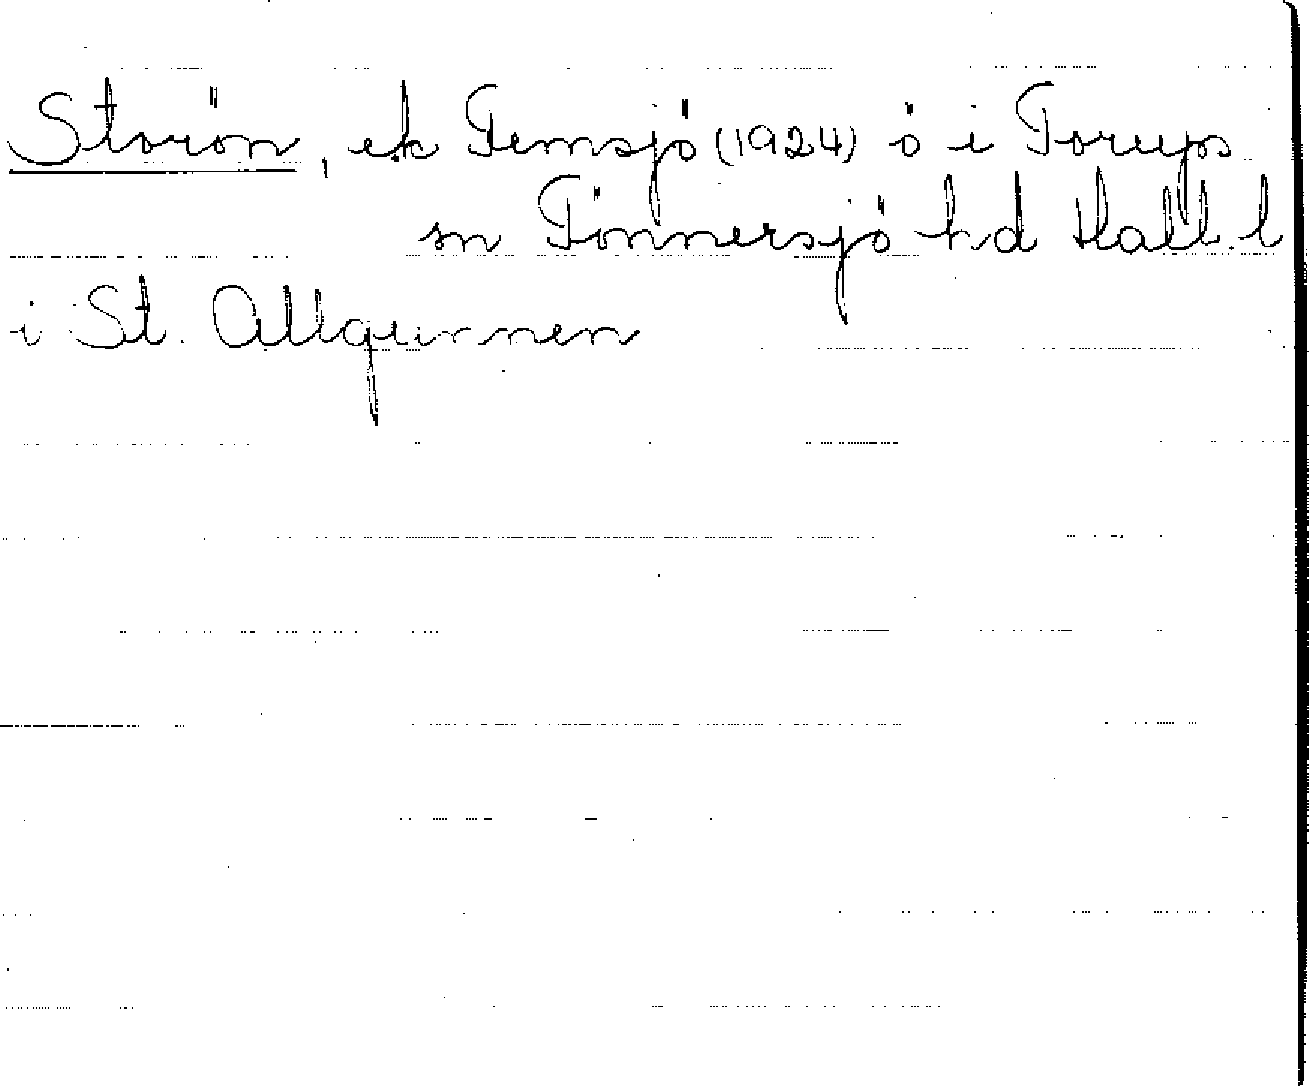 Storön, ek Femsjö (1924) ö i Torups
sn Tönnersjö hd Hall. l
i St. Allgunnen